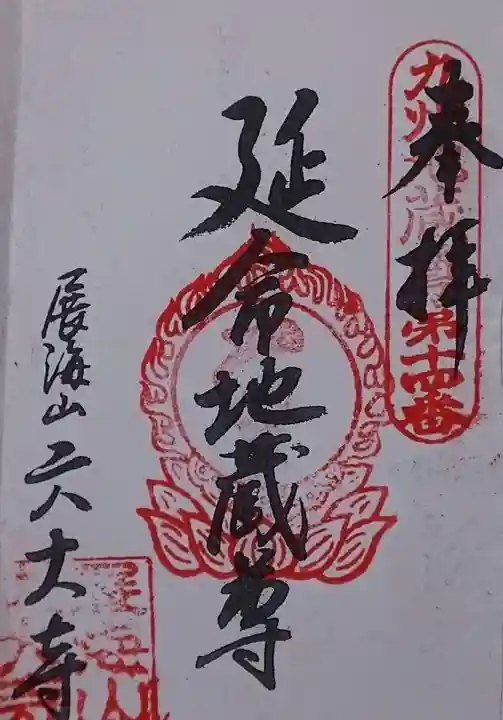 九州地蔵尊第十四番
奉拝
延命地蔵尊
展海山六大寺